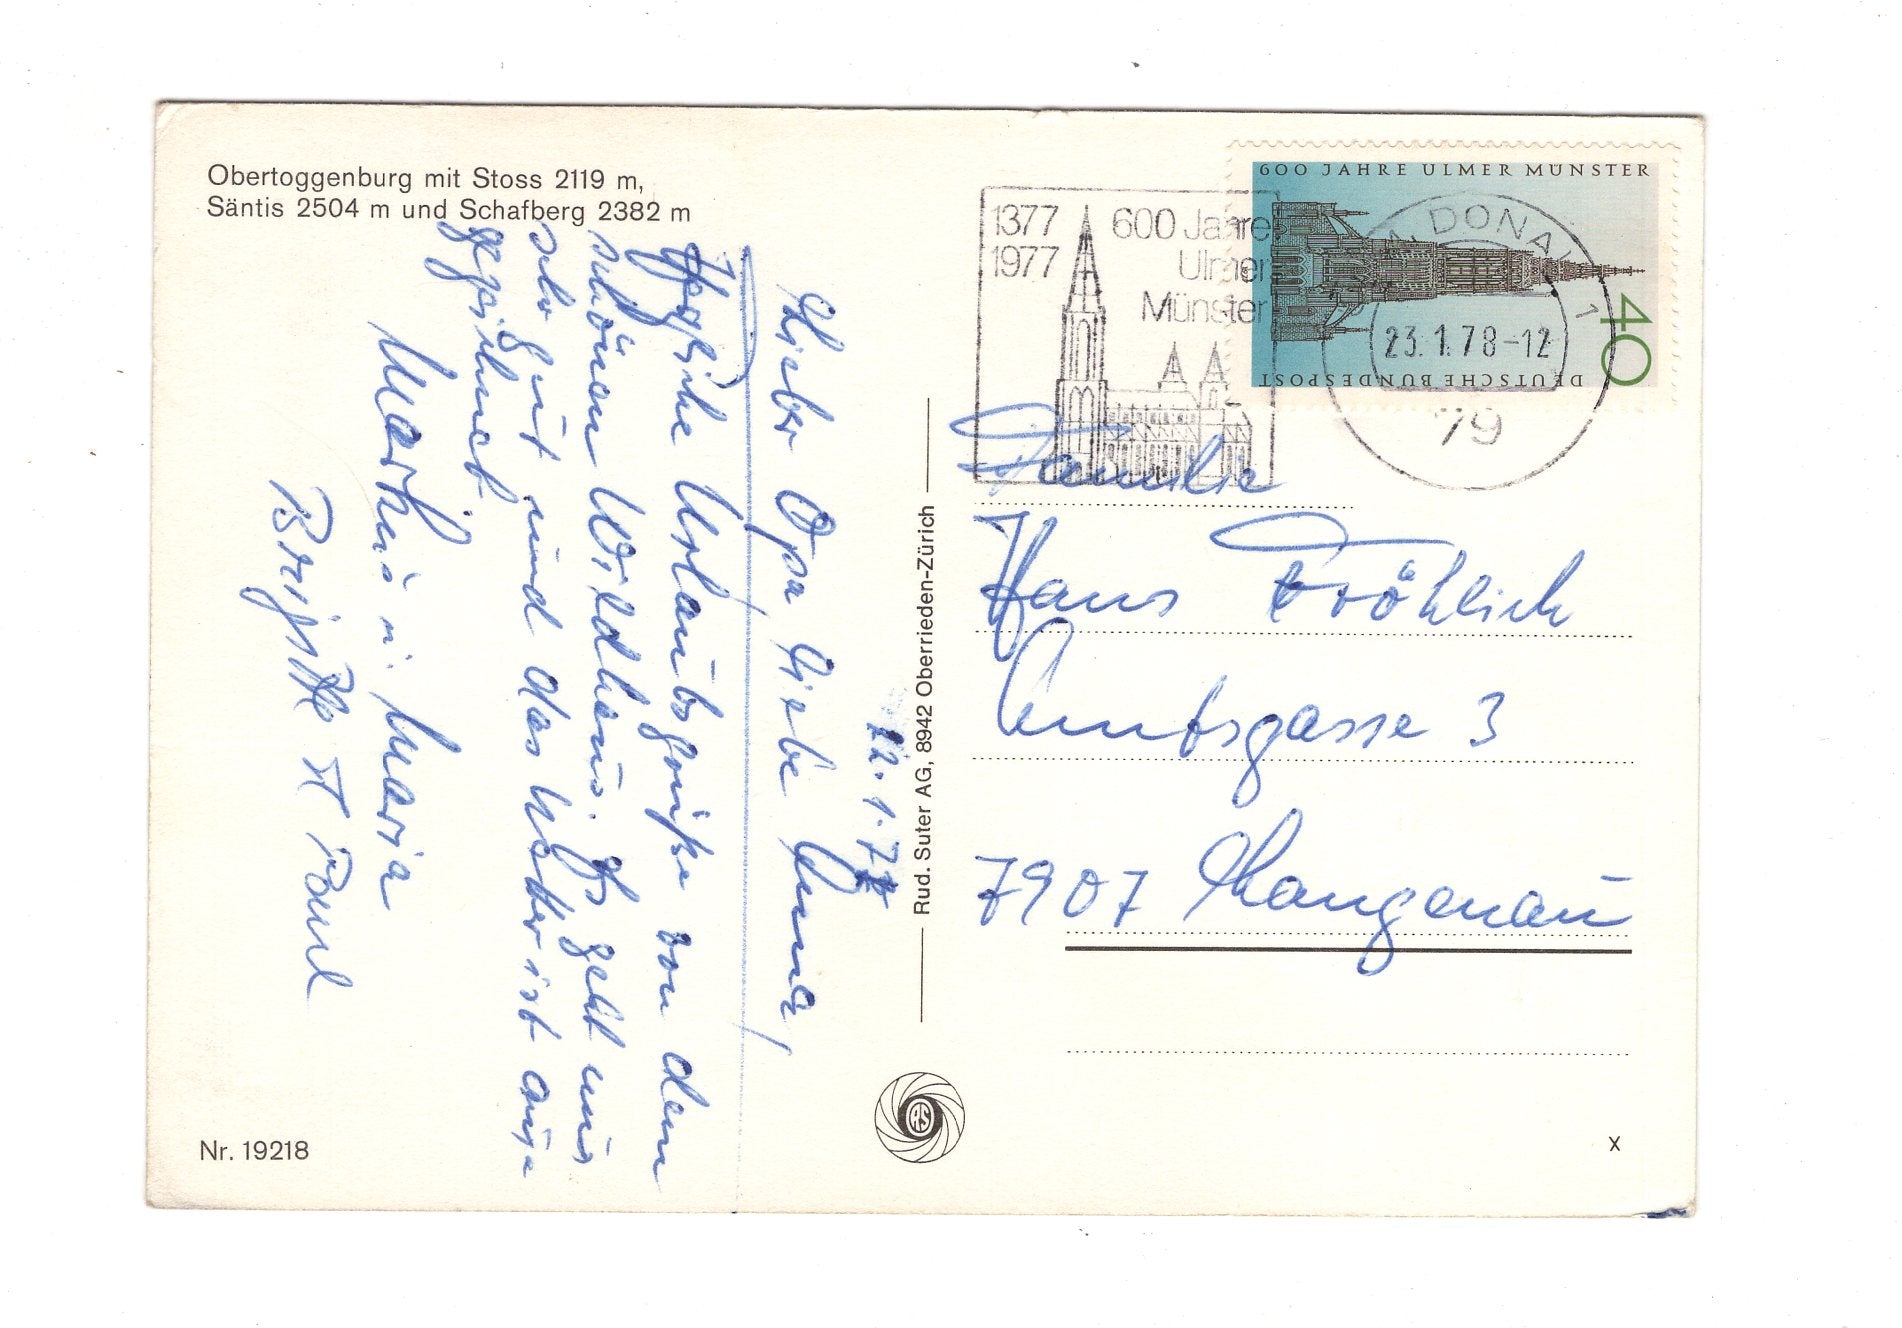 Obertoggenburg mit Stoss 2119 m,
Säntis 2504 m und Schafberg 2382 m
22.1.78
Lieber Opa liebe Anna,
Herzliche Urlaubsgrüße von dem
schönen Wildhaus. Es geht uns
sehr gut und das Wetter ist ausge
gezeichnet.
Markus u. Maria
Brigitte + Paul
Nr. 19218
Rud. Suter AG, 8942 Oberrieden-Zürich
RS
1377
1977
600 Jahre
Ulmer
Münster
600 JAHRE ULMER MÜNSTER
40
DEUTSCHE BUNDESPOST
DONAU 1
23.1.78-12
79
Familie
Hans Fröhlich
Amtsgasse 3
7907 Langenau
X